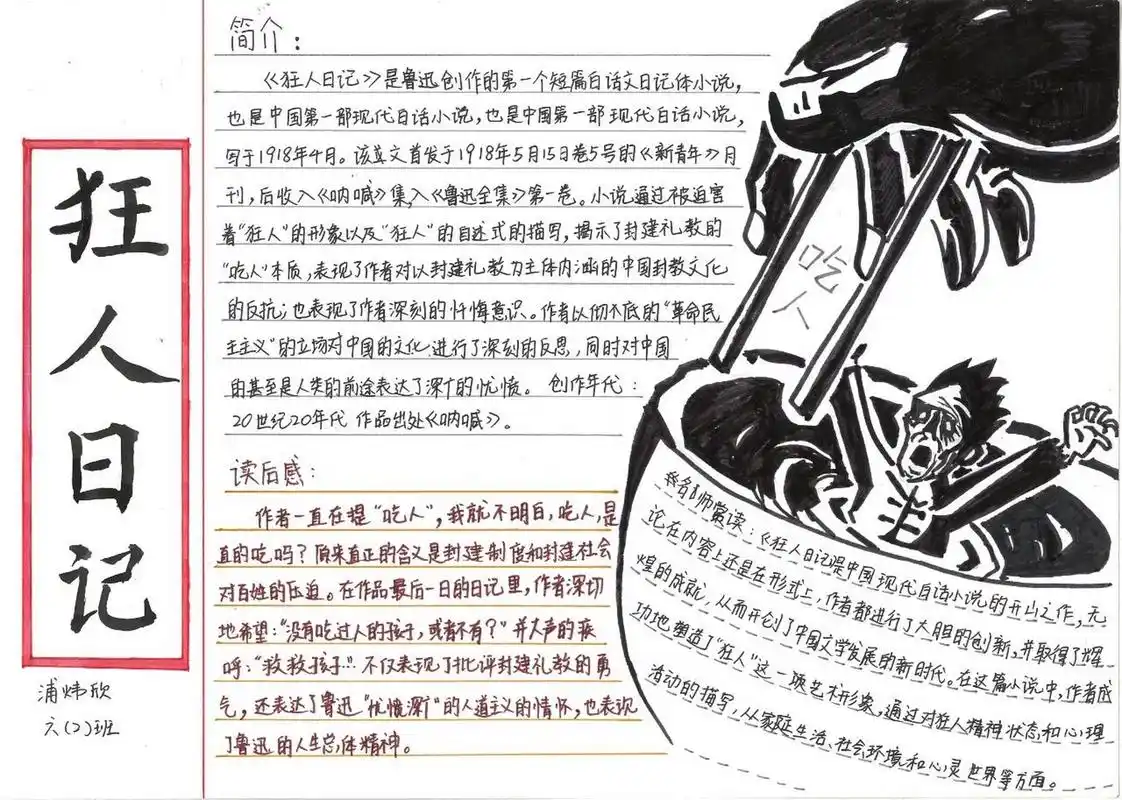 狂人日记
浦炜欣
六(2)班
简介：
《狂人日记》是鲁迅创作的第一个短篇白话文日记体小说，
也是中国第一部现代白话小说，也是中国第一部现代白话小说，
写于1918年4月。该文首发于1918年5月15日卷5号的《新青年》月
刊，后收入《呐喊》集，入《鲁迅全集》第一卷。小说通过被迫害
着“狂人”的形象以及“狂人”的自述式的描写，揭示了封建礼教的
“吃人”本质，表现了作者对以封建礼教为主体内涵的中国封教文化
的反抗；也表现了作者深刻的忏悔意识。作者以彻不底的“革命民
主主义”的立场对中国的文化进行了深刻的反思，同时对中国
的甚至是人类的前途表达了深广的忧愤。 创作年代：
20世纪20年代 作品出处《呐喊》。
读后感：
作者一直在提“吃人”，我就不明白，吃人，是
真的吃吗？原来真正的含义是封建制度和封建社会
对百姓的压迫。在作品最后一日的日记里，作者深切
地希望：“没有吃过人的孩子，或者不有？”并大声的疾
呼：“救救孩子”. 不仅表现了批评封建礼教的勇
气，还表达了鲁迅“忧愤深广”的人道主义的情怀，也表现
了鲁迅的人生总体精神。
吃
人
名师赏读：《狂人日记是中国现代白话小说的开山之作，无
论在内容上还是在形式上，作者都进行了大胆的创新，并取得了辉
煌的成就，从而开创了中国文学发展的新时代。在这篇小说中，作者成
功地塑造了“狂人”这一项艺术形象，通过对狂人精神状态和心理
活动的描写，从家庭生活、社会环境和心灵世界等方面。